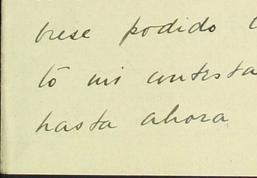 biese podido
tó mi contesta
hasta ahora